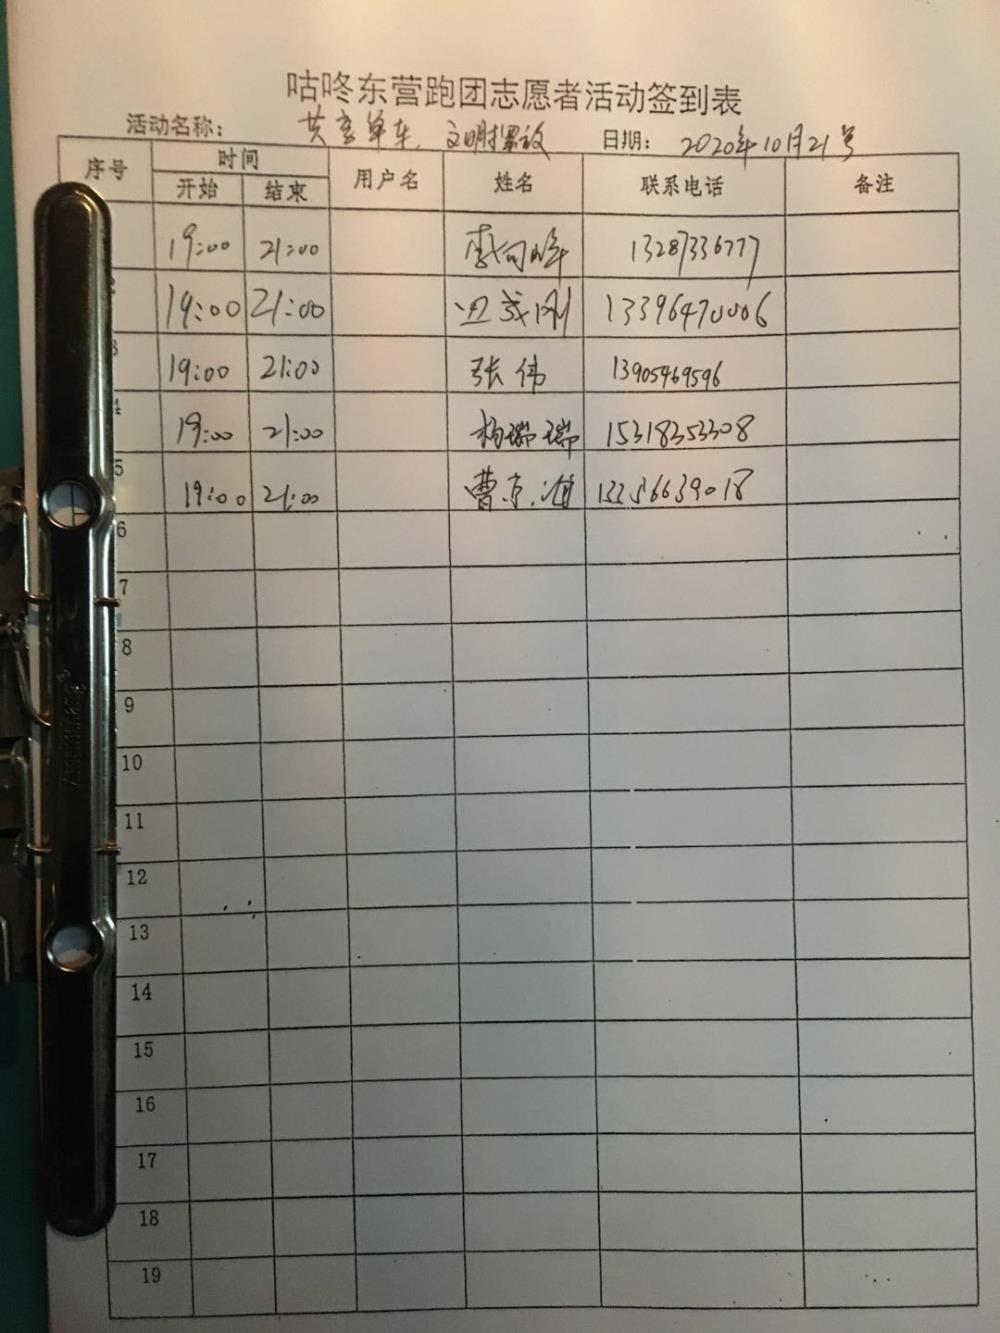 咕咚东营跑团志愿者活动签到表
活动名称： 共享单车，文明摆放 日期： 2020年10月21号
序号 时间 用户名 姓名 联系电话 备注
开始 结束
19:00 21:00 13287336777
19:00 21:00 13396470006
3 19:00 21:00 张伟 13905469596
4 19:00 21:00 杨瑞瑞 15318353308
5 19:00 21:00 曹
6
7
8
9
10
11
12
13
14
15
16
17
18
19